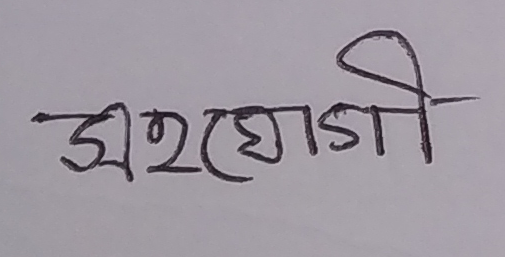 সহযোগী